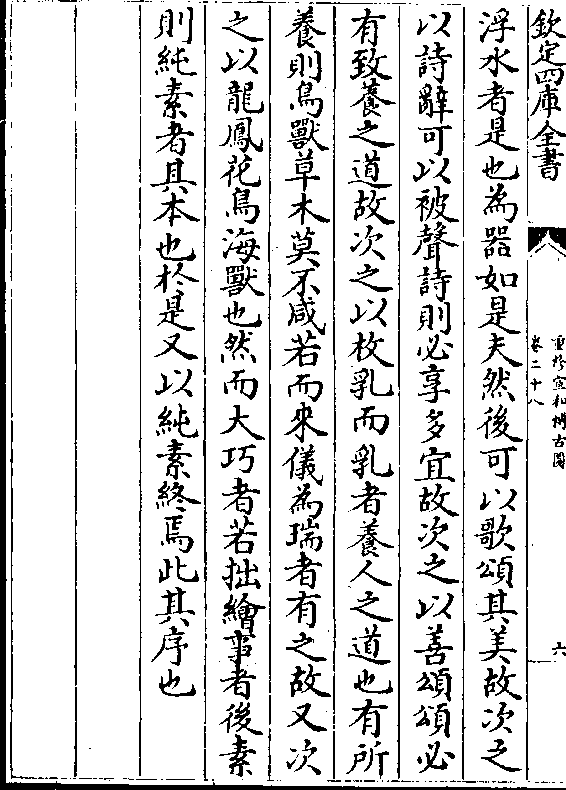 欽定四庫全書
重修宣和博古圖
卷二十八
六
浮水者是也為器如是夫然後可以歌頌其美故次之
以詩辭可以被聲詩則必享多宜故次之以善頌頌必
有致養之道故次之以枚乳而乳者養人之道也有所
養則鳥獸草木莫不咸若而來儀為瑞者有之故又次
之以龍鳳花鳥海獸也然而大巧者若拙繪事者後素
則純素者其本也於是又以純素終焉此其序也